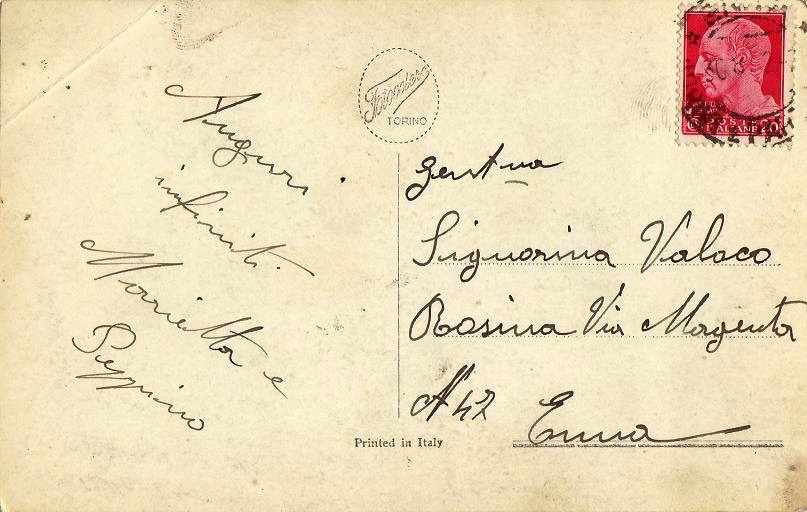 Auguri
infiniti
Marietta e
Peppino
TORINO
POSTE
ITALIANE 20
Gent.ma
Signorina Valaco
Rosina Via Magenta
N 42
Enna
Printed in Italy